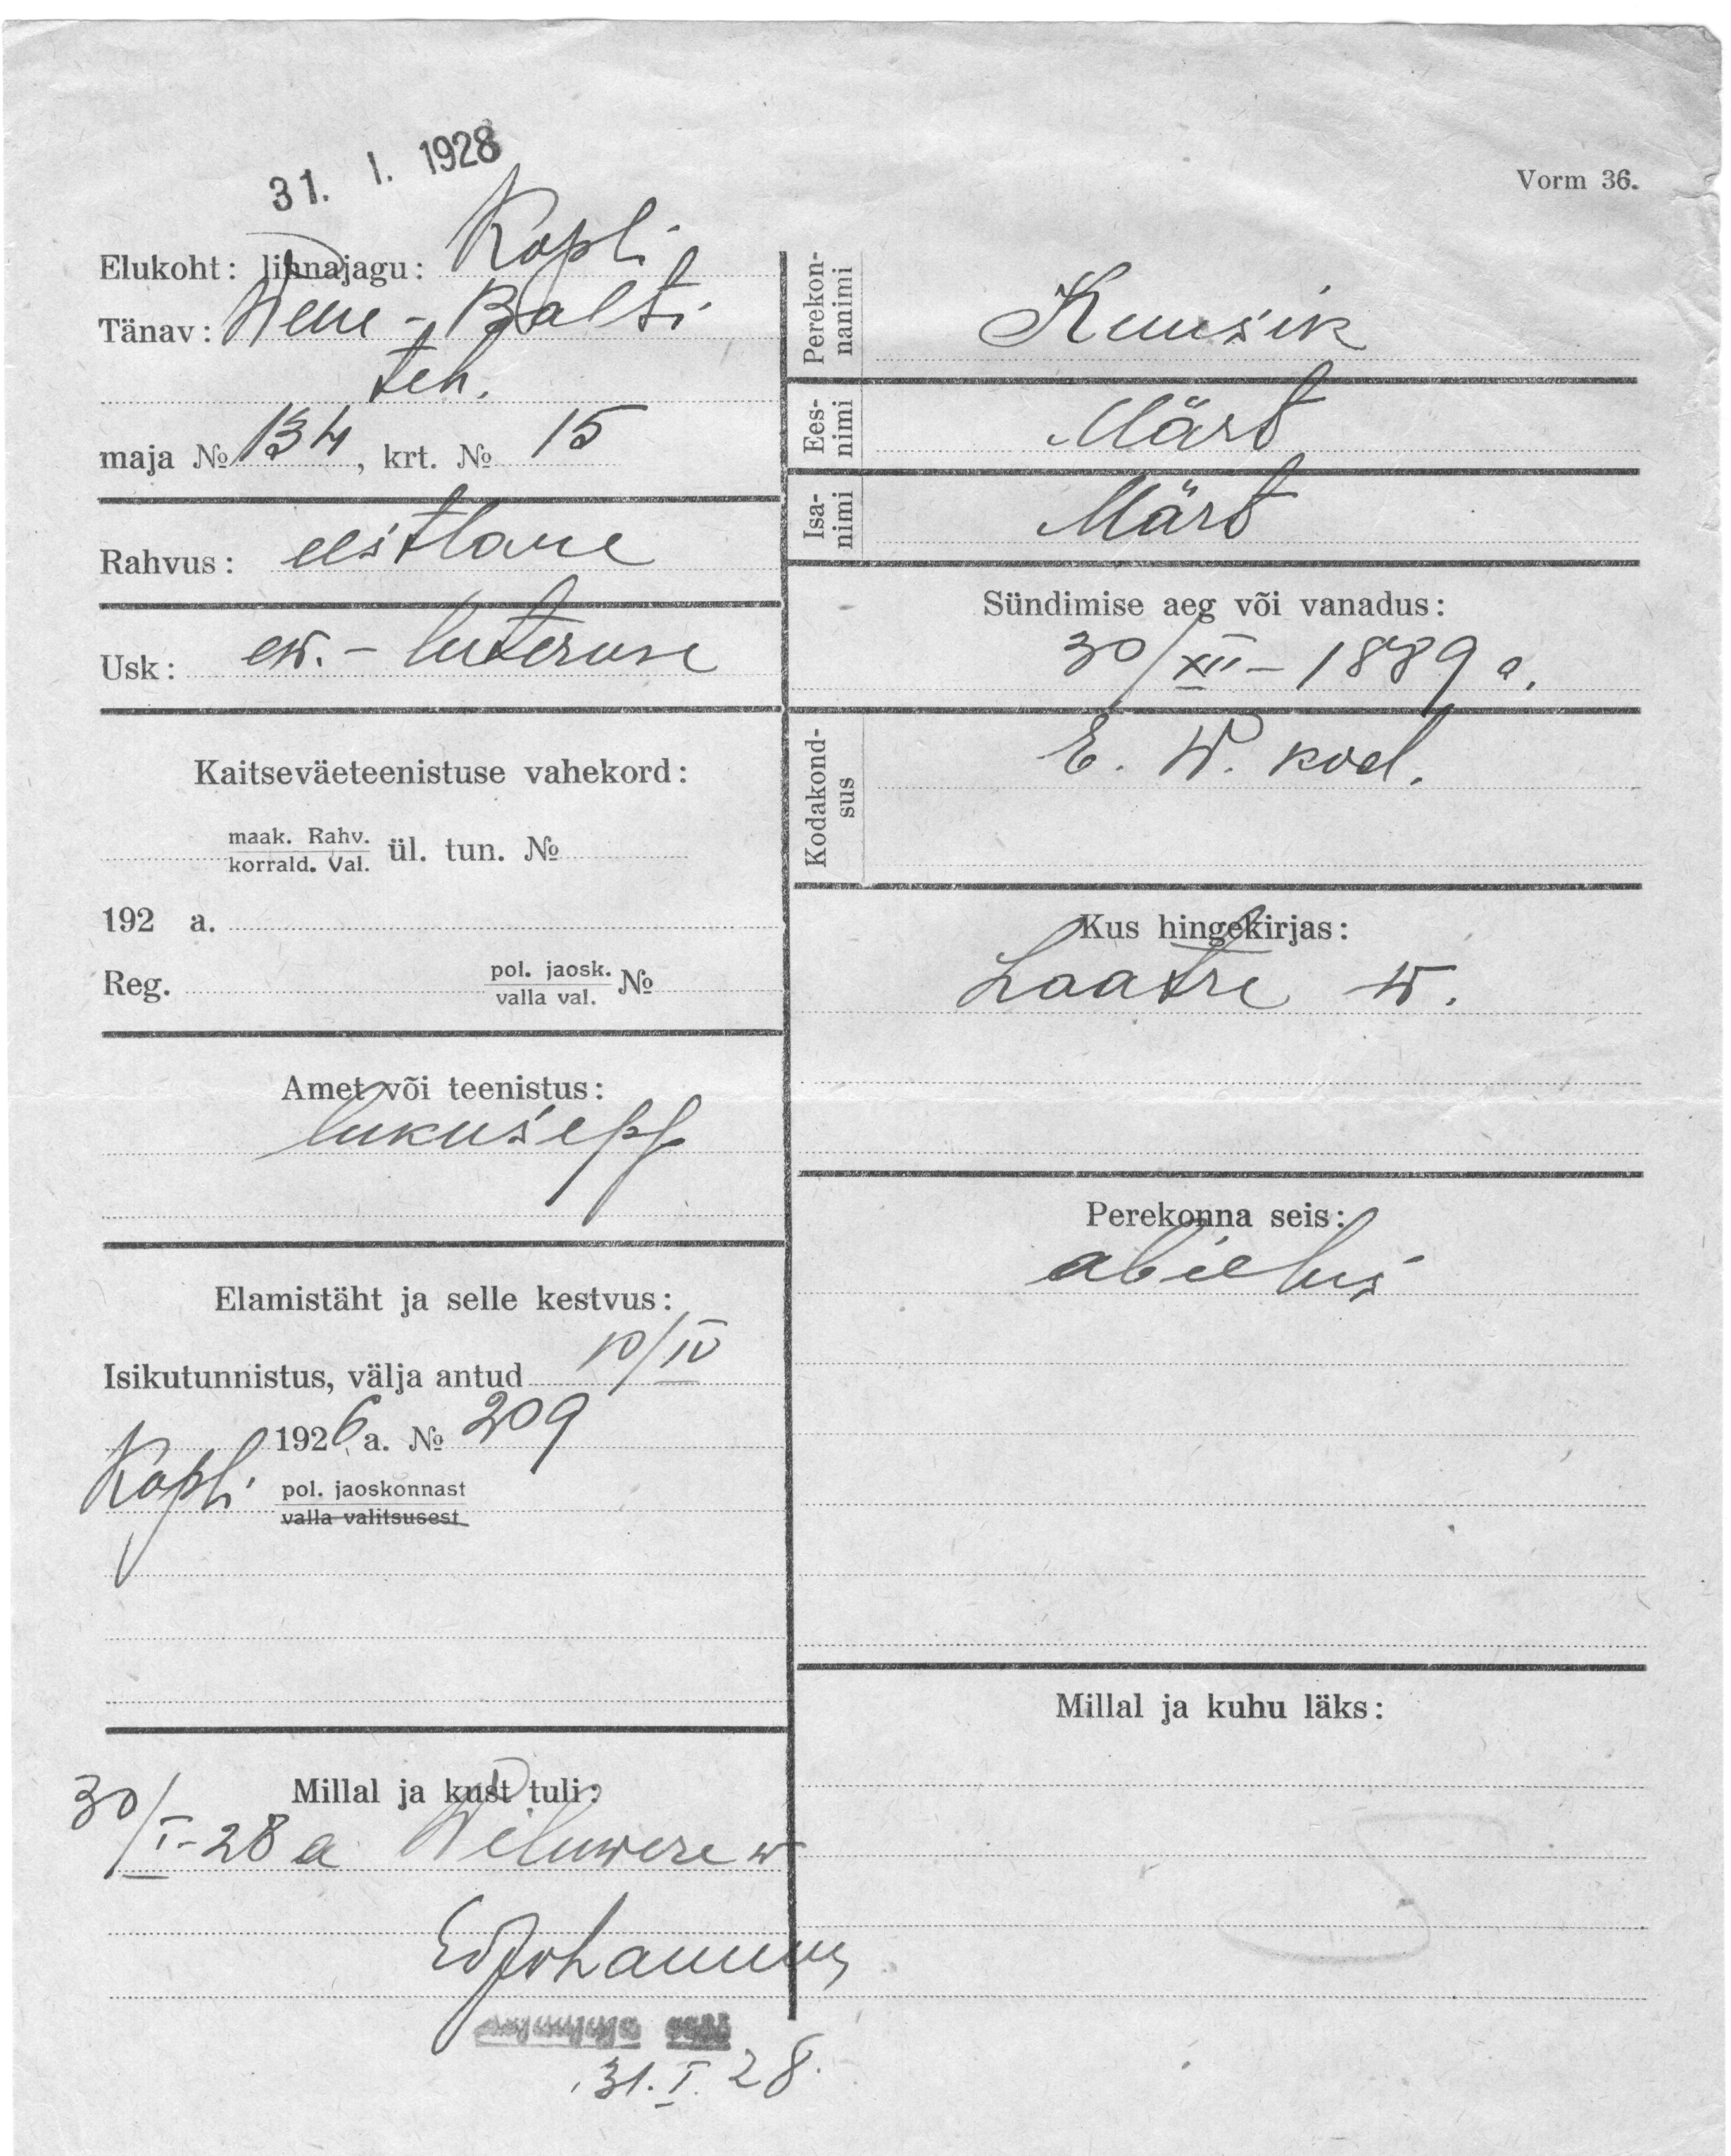 31. I. 1928
Vorm 36.
Elukoht: linnajagu: Kopli
Tänav: Wene-Balti
teh.
maja № 134, krt. № 15
Rahvus: eestlane
Usk: ew.-luterusu
Kaitseväeteenistuse vahekord:
maak. Rahv.
korrald. Val. ül. tun. №
192 a.
Reg. pol. jaosk. №
valla val.
Amet või teenistus:
lukusepp
Elamistäht ja selle kestvus:
Isikutunnistus, välja antud 10/IV
1926 a. № 209
Kopli pol. jaoskonnast
valla valitsusest
Millal ja kust tuli:
30/I-28 a
31.I.28.
Perekon-
nanimi
Kuusik
Ees-
nimi
Märt
Isa-
nimi
Märt
Sündimise aeg või vanadus:
30/XII-1889 a.
Kodakond-
sus
E. W. kod.
Kus hingekirjas:
Laatre w.
Perekonna seis:
abielus
Millal ja kuhu läks: